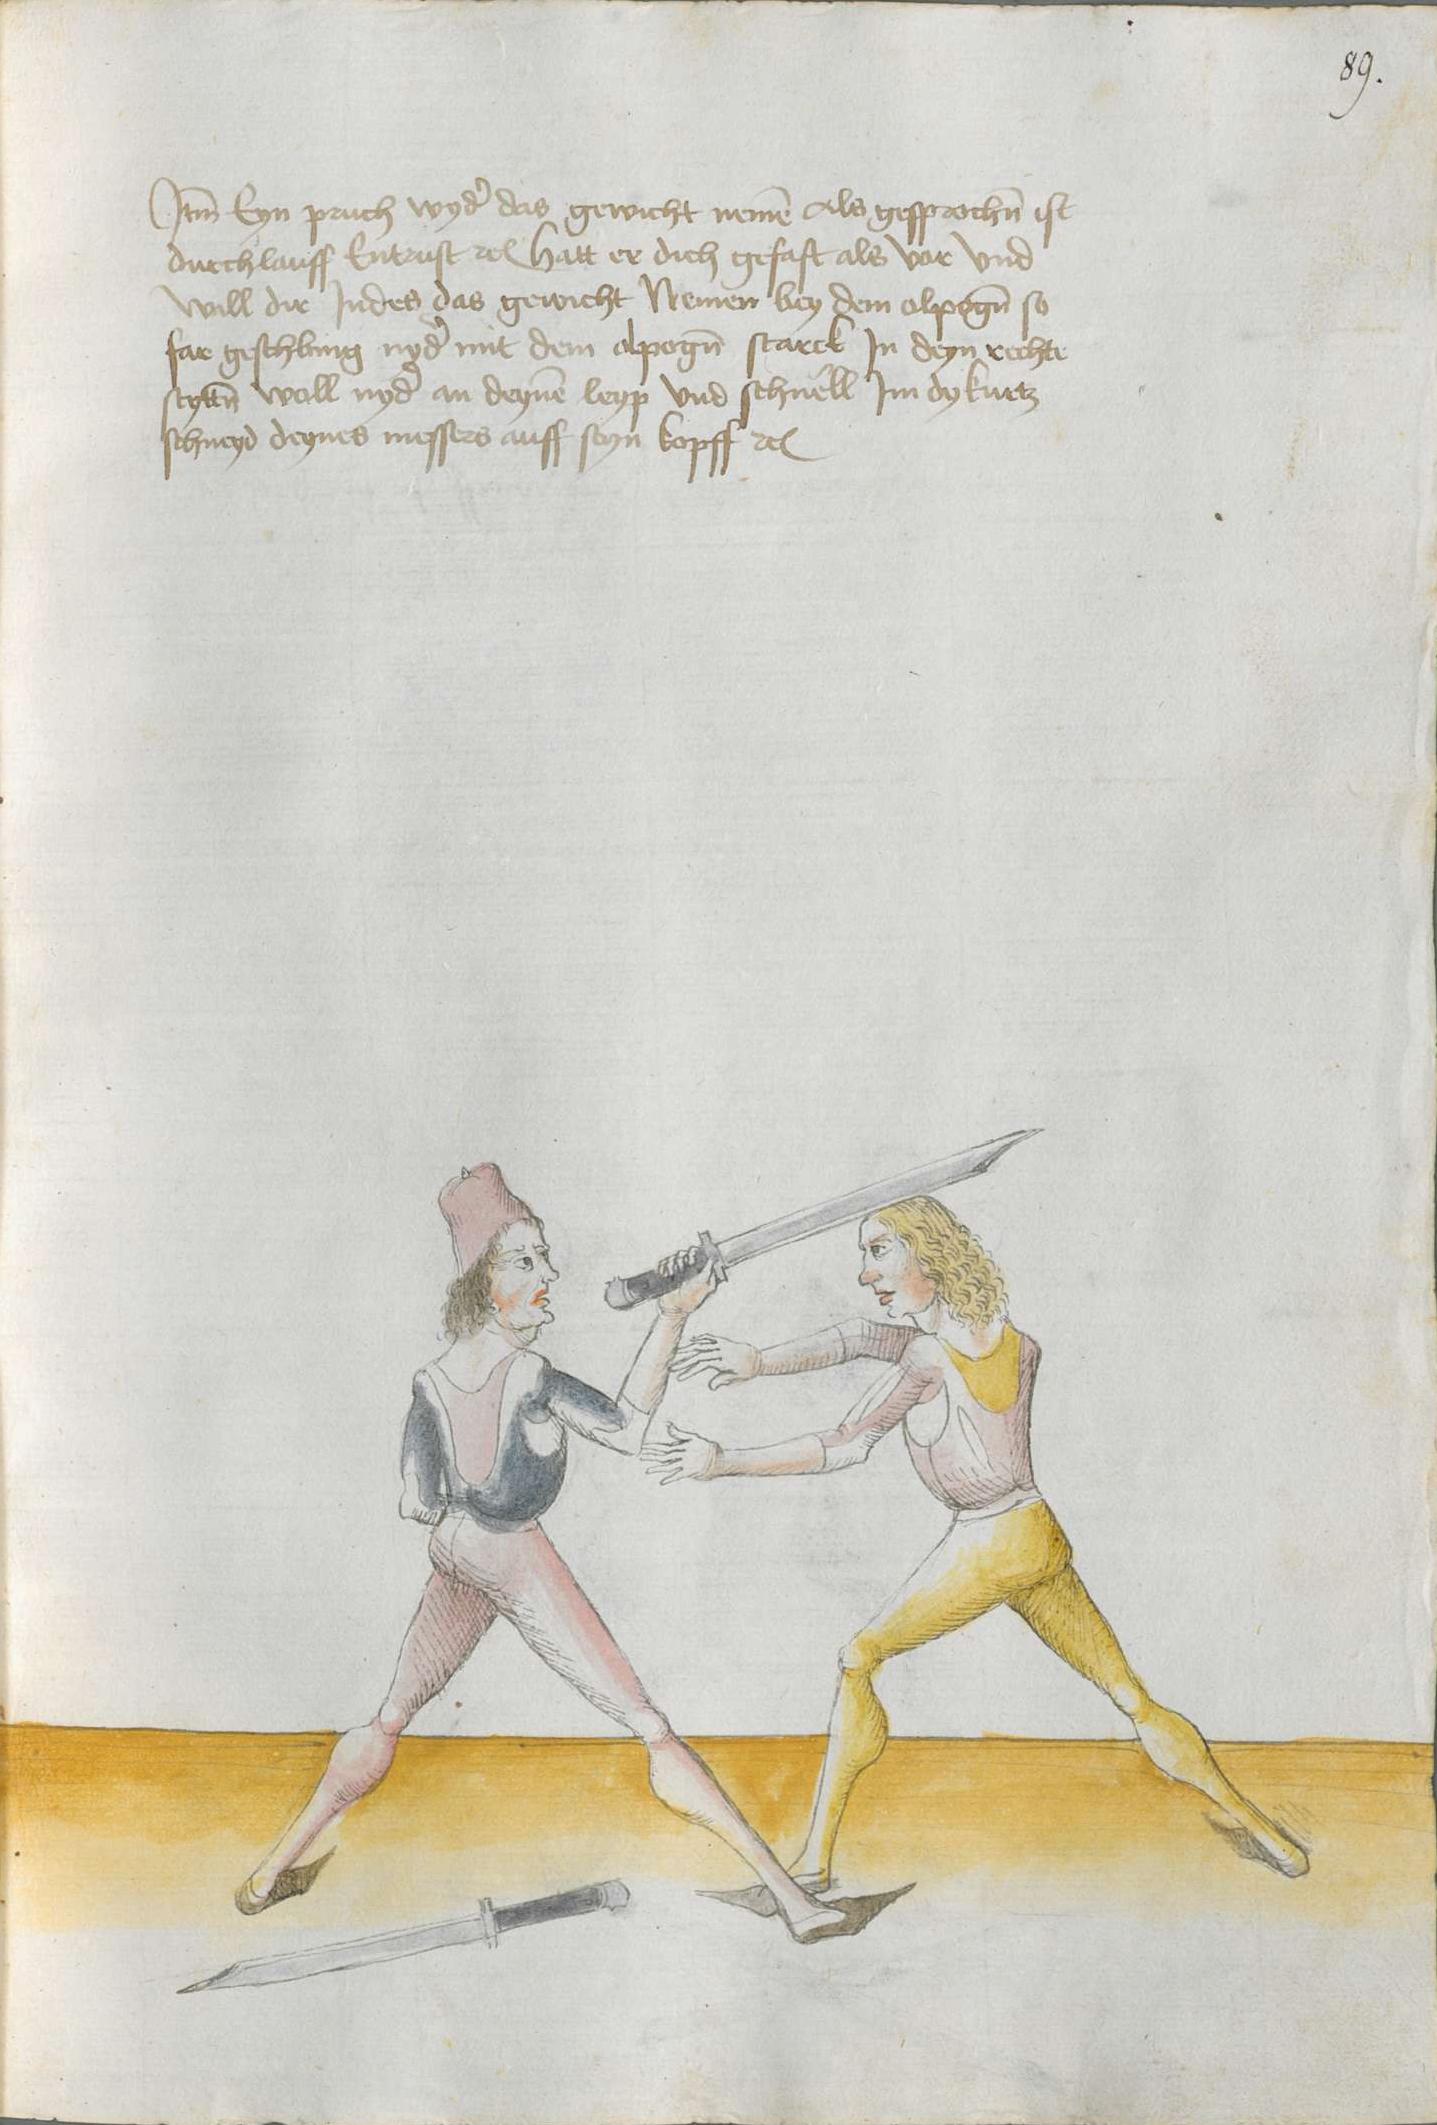 89.
Itm̃ Eyn pruch wyd' das gewicht nemē Als gesprochn̄ ist
durchlauff Entrust rc Hatt er dich gefast als vor Vnd
Will dir Indes das gewicht Nemen bey dem olpogn̄ so
far geschbing nyd' mit dem olpogn̄ starck In deyn rechte
seyttn̄ Woll nyd' an deynē leyp Vnd schnell Im dy kurtz
schneyd deynes messers auff seyn kopff rc